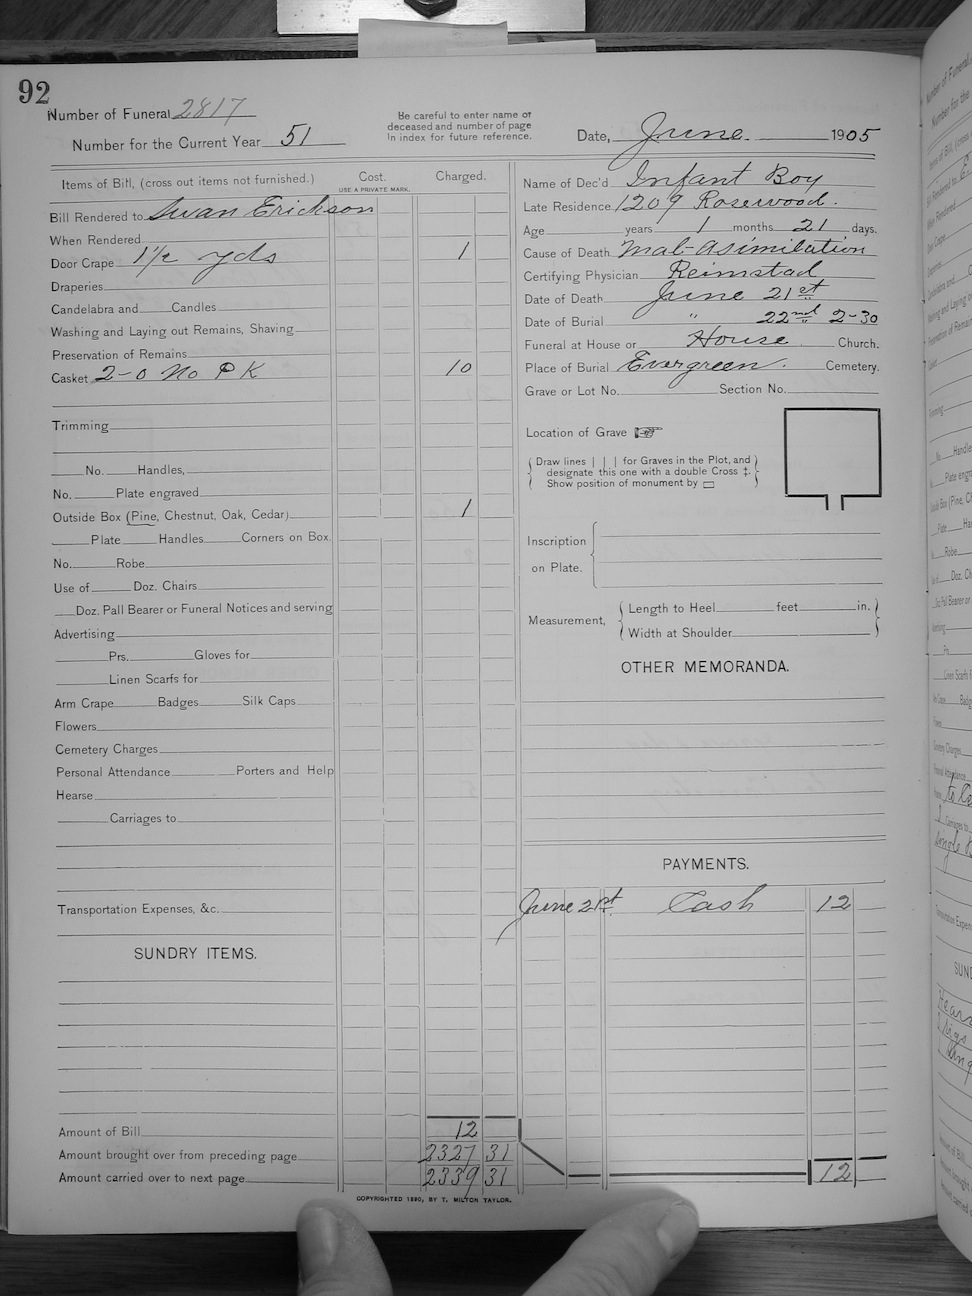 92
Number of Funeral 2817
Number for the Current Year 51
Be careful to enter name of
deceased and number of page
in index for future reference.
Date, June 1905
Items of Bill, (cross out items not furnished.)
Cost.
USE A PRIVATE MARK.
Charged.
Bill Rendered to Swan Erickson
When Rendered
Door Crape 1 1/2 yds 1
Draperies
Candelabra and Candles
Washing and Laying out Remains, Shaving
Preservation of Remains
Casket 2-0 No P K 10
Trimming
No. Handles,
No. Plate engraved
Outside Box (Pine, Chestnut, Oak, Cedar) 1
Plate Handles Corners on Box.
No. Robe
Use of Doz. Chairs
Doz. Pall Bearer or Funeral Notices and serving
Advertising
Prs. Gloves for
Linen Scarfs for
Arm Crape Badges Silk Caps
Flowers
Cemetery Charges
Personal Attendance Porters and Help
Hearse
Carriages to
Transportation Expenses, &c.
SUNDRY ITEMS.
Amount of Bill 12
Amount brought over from preceding page 2327 31
Amount carried over to next page 2339 31
COPYRIGHTED 1890, BY T. MILTON TAYLOR.
Name of Dec'd Infant Boy
Late Residence 1209 Rosewood.
Age years 1 months 21 days.
Cause of Death Mal-asimilation
Certifying Physician Reimstad
Date of Death June 21st
Date of Burial " 22nd 2-30
Funeral at House or House Church.
Place of Burial Evergreen. Cemetery.
Grave or Lot No. Section No.
Location of Grave ☞
Draw lines | | | for Graves in the Plot, and
designate this one with a double Cross ‡.
Show position of monument by ▭
Inscription
on Plate.
Measurement,
Length to Heel feet in.
Width at Shoulder
OTHER MEMORANDA.
PAYMENTS.
June 21st. Cash 12
12